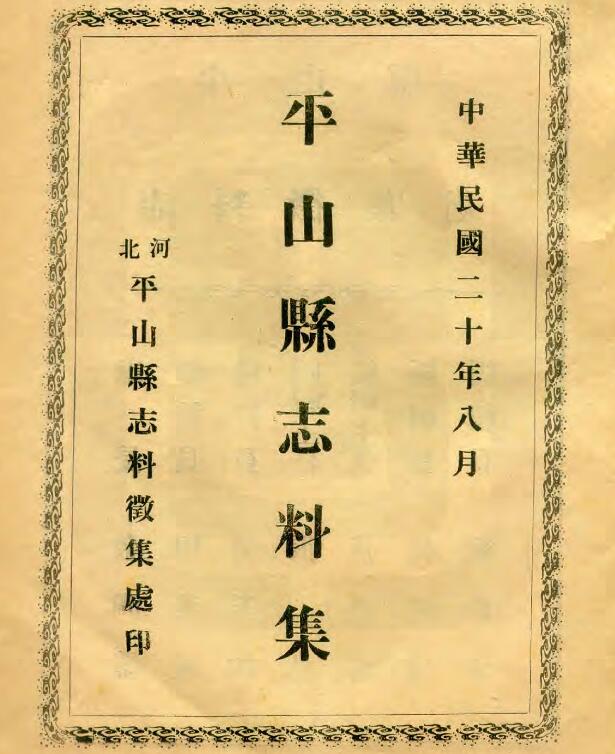 中華民國二十年八月
平山縣志料集
河北
平山縣志料徵集處印